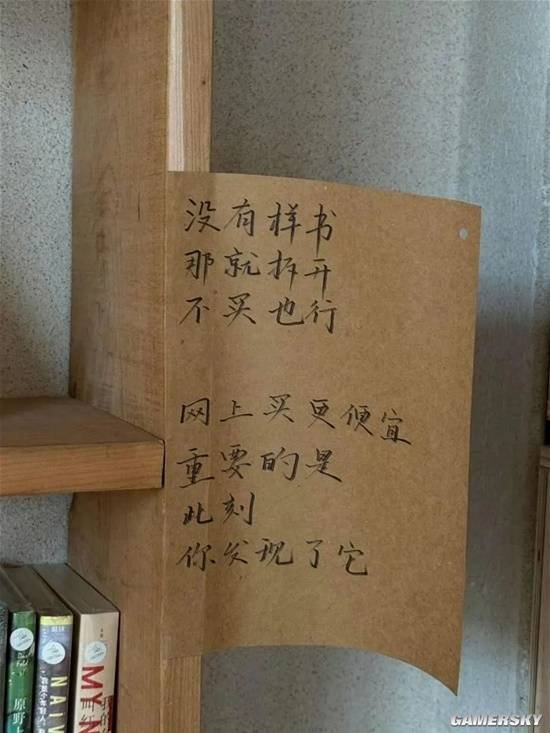 没有样书
那就拆开
不买也行
网上买更便宜
重要的是
此刻
你发现了它
原野上
NAIV
MY N
GAMERSKY